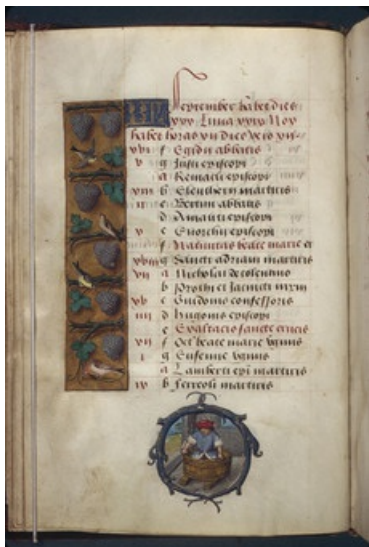 KL September habet dies
xxx Luna xxix Nox
habet horas xii dies vero xii
xvi f Egidii abbatis
v g Justi episcopi
a Remacli episcopi
xiii b Eleutherii martiris
ii c Bertini abbatis
d Amati episcopi
x e Evorcii episcopi
f Nativitas beate marie et
xviii g Sancti adriani martiris
vii a Nicholai de tolentino
b Prothi et Jacincti mrm
xv c Guidonis confessoris
iiii d hugonis episcopi
e Exaltacio sancte crucis
xii f Oct beate marie virginis
i g Eufemie virginis
a Lamberti epi martiris
ix b ferreoli martiris